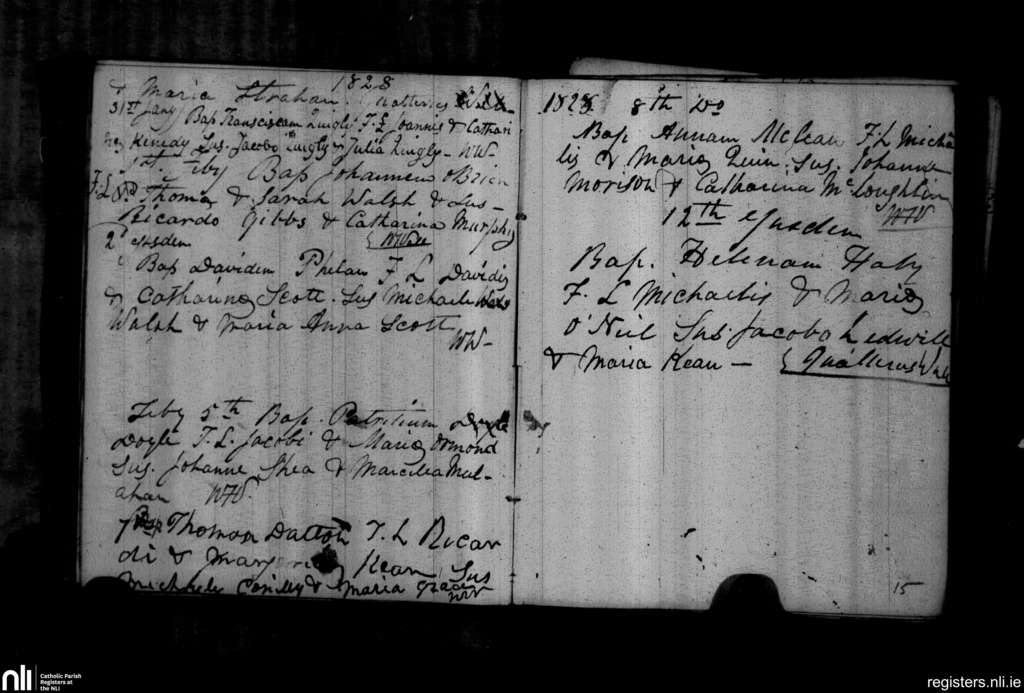 1828
& Maria Strahan. Gualterus Wall
31st Jany Bap Franciscam Quigly F. L Joannis & Cathari
næ Kenedy Sus. Jacobo Quigly & Julia Quigly - WW-
1st. Feby Bap Johannem O Brien
F. L Thoma & Sarah Walsh & Sus-
Ricardo Gibbs & Catharina Murphy
2d ejusdem
Bap Davidem Phelan F L Davidis
& Catharinæ Scott. Sus Michaele
Walsh & Maria Anna Scott
WW-
Feby 5th Bap. Patritium Doyle
Doyle F. L. Jacobi & Maria Ormond
Sus. Johanne Shea & Marcilia Mul-
ahan WW.
7 Bap Thomam Datton F. L Ricar
di & Marg Kean Sus
Michaele & Maria Grace
WW
1828 8th Do
Bap Annam McLean F L Michæ
lis & Maria Quin. Sus. Johanne
Morison & Catharina McLoughlin
WW
12th ejusdem
Bap. Helenam Haly
F. L Michaelis & Mariæ
O'Neil Sus. Jacobo Ledwill
& Maria Kean - Gualterus Wall
15
nli
Catholic Parish
Registers at
the NLI
registers.nli.ie